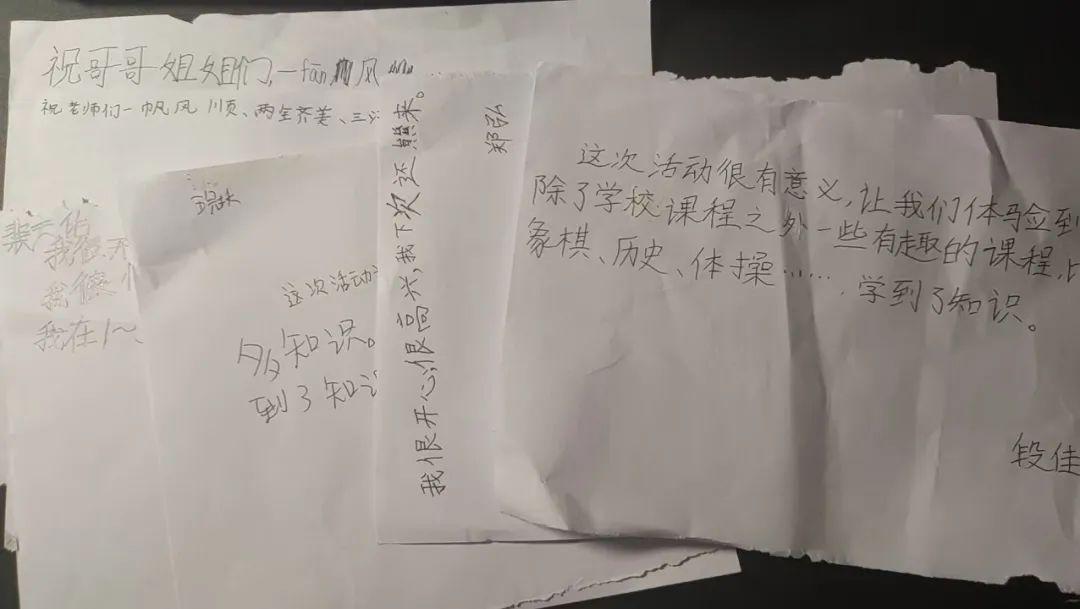 祝哥哥姐姐们,一fān 风
祝老师们一帆风顺、两全齐美、三
裴元佑
我很开
我
我在1~
这次活动
多知识。
到了知识
我很开心,很高兴,我下次还来。
郑弘
这次活动很有意义,让我们体验到
除了学校课程之外一些有趣的课程,比
象棋、历史、体操……,学到了知识。
段佳